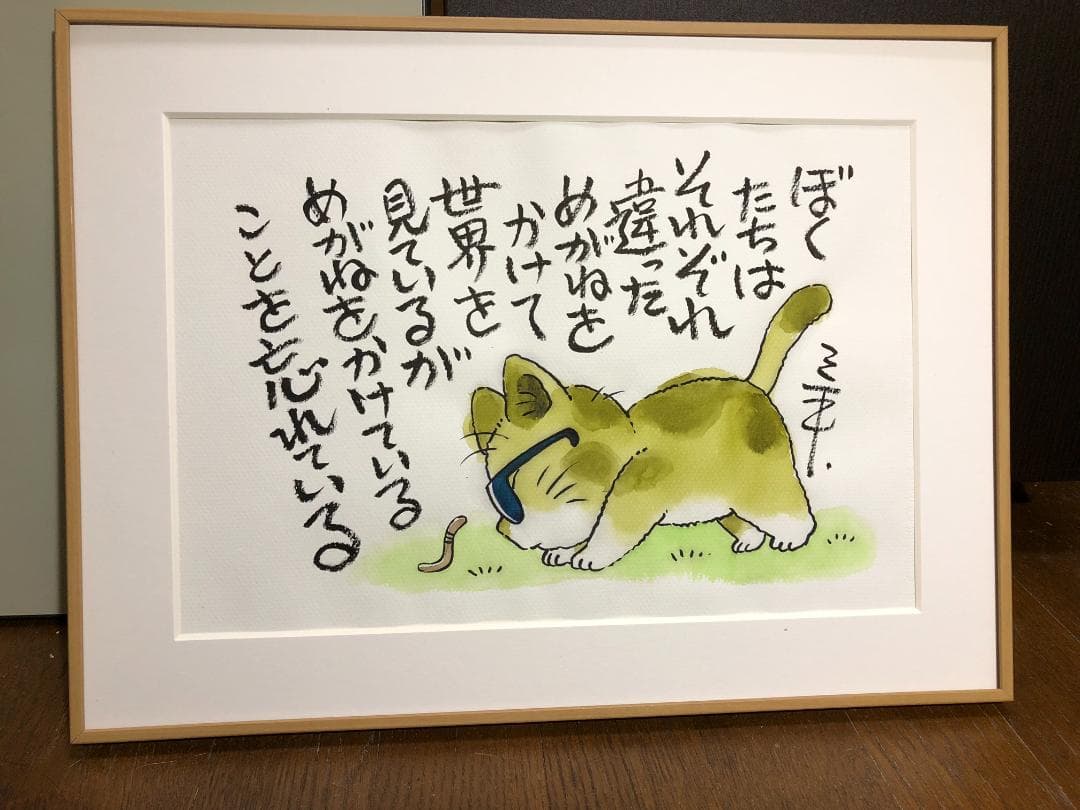 ぼく
たちは
それぞれ
違った
めがねを
かけて
世界を
見ているが
めがねをかけている
ことを忘れている